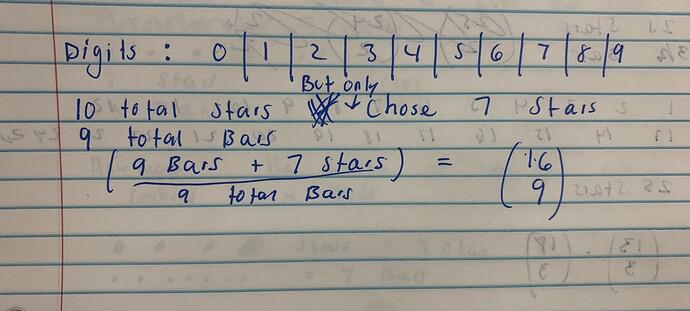 Digits : 0 | 1 | 2 | 3 | 4 | 5 | 6 | 7 | 8 | 9
But only
10 total stars ↓ Chose 7 Stars
9 total Bars
( 9 Bars + 7 stars ) = ( 16
9 total Bars 9 )